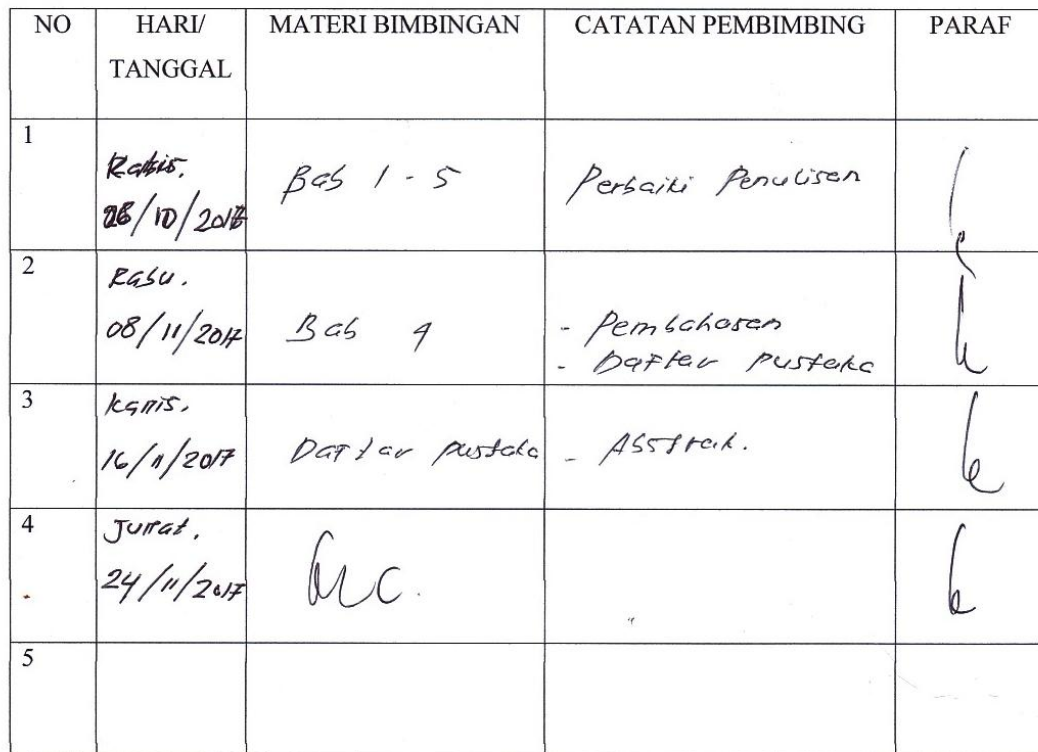 NO HARI/ MATERI BIMBINGAN CATATAN PEMBIMBING PARAF
TANGGAL
1
Bab 1 - 5 Perbaiki Penulisan
/10/2017
2
Rabu.
08/11/2017 Bab 4 - Pembahasan
- Daftar Pustaka
3
Kamis.
16/11/2017 Daftar pustaka - Abstrak.
4
Jumat.
24/11/2017
5